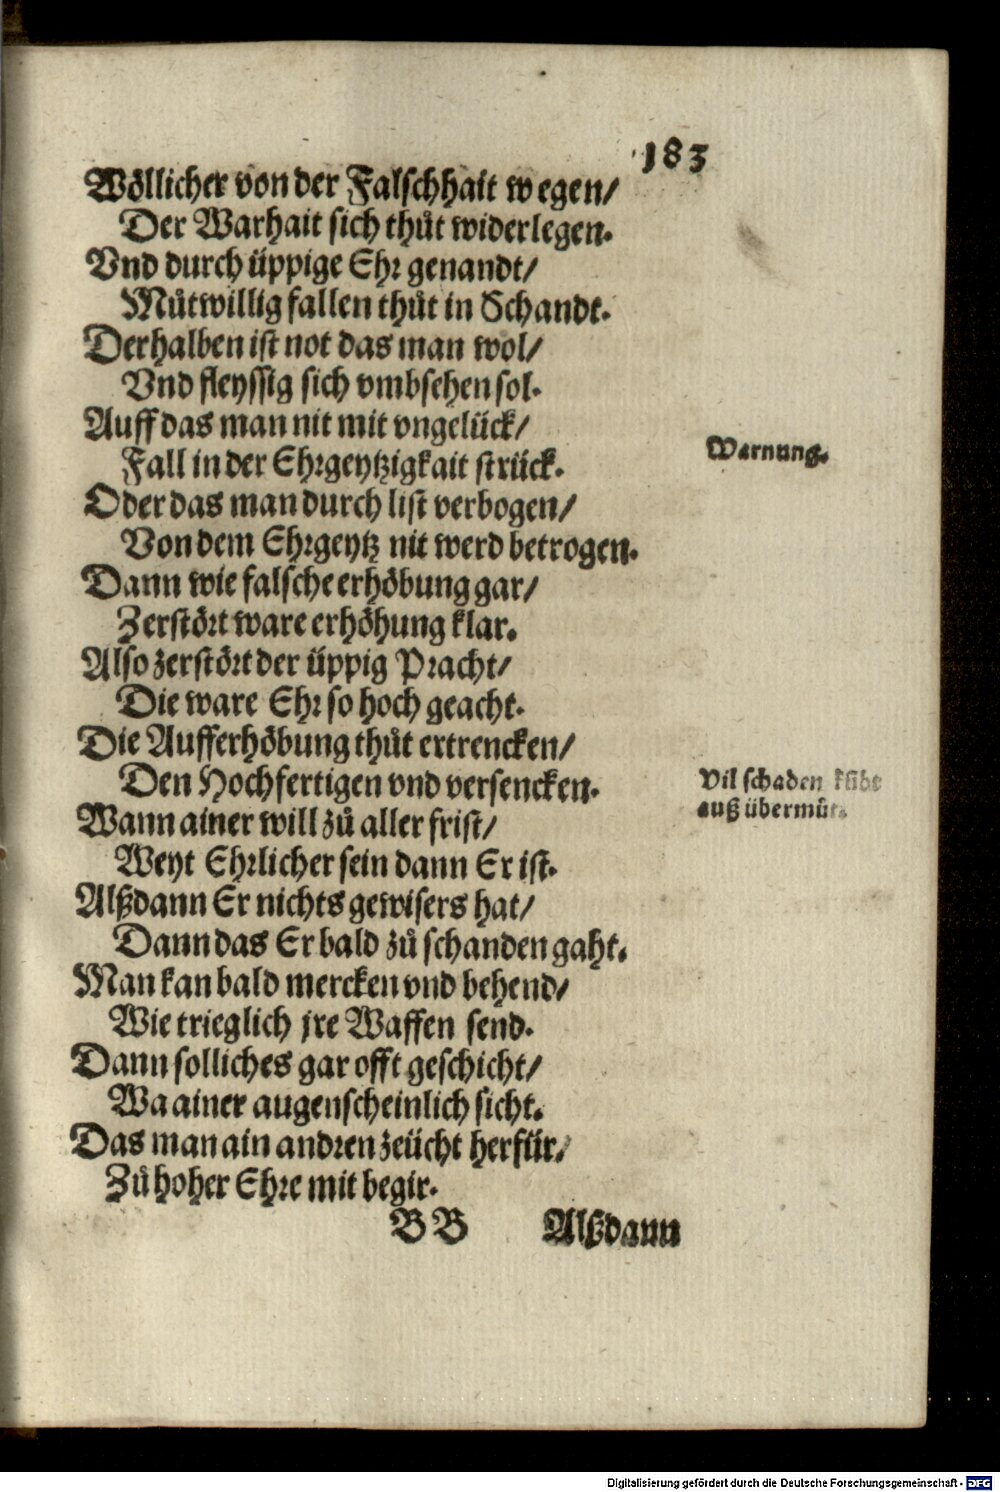 183
Wöllicher von der Falschhait wegen/
Der Warhait sich thůt widerlegen.
Vnd durch üppige Ehr genandt/
Můtwillig fallen thůt in Schandt.
Derhalben ist not das man wol/
Vnd fleyssig sich vmbsehen sol.
Auff das man nit mit vngelück/
Fall in der Ehrgeytzigkait strück.
Oder das man durch list verbogen/
Von dem Ehrgeytz nit werd betrogen.
Warnung.
Dann wie falsche erhöbung gar/
Zerstört ware erhöhung klar.
Also zerstört der üppig Pracht/
Die ware Ehr so hoch geacht.
Die Aufferhöbung thůt ertrencken/
Den Hochfertigen vnd versencken.
Vil schaden
auß übermůt
Wann ainer will zů aller frist/
Weyt Ehrlicher sein dann Er ist.
Alßdann Er nichts gewisers hat/
Dann das Er bald zů schanden gaht.
Man kan bald mercken vnd behend/
Wie trieglich jre Waffen send.
Dann solliches gar offt geschicht/
Wa ainer augenscheinlich sicht.
Das man ain andren zeücht herfür/
Zů hoher Ehre mit begir.
BB Alßdann
Digitalisierung gefördert durch die Deutsche Forschungsgemeinschaft - DFG